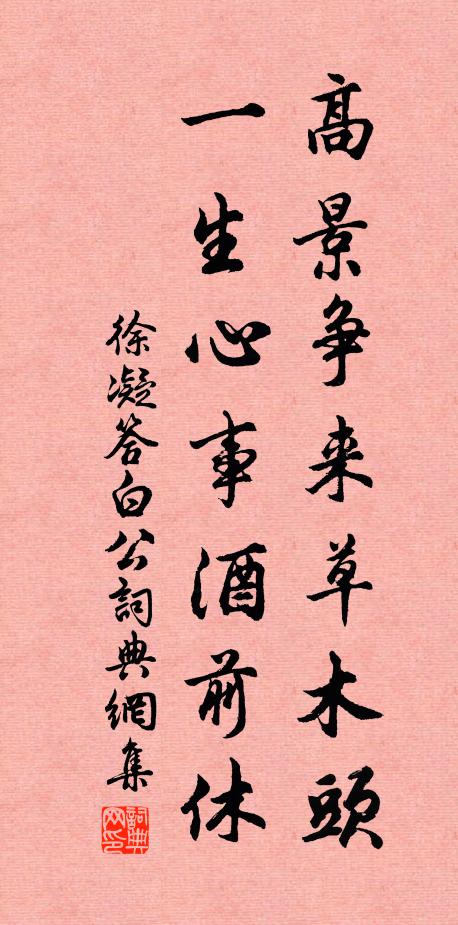 高景争来草木頭
一生心事酒前休
徐凝答白公詞典網集
詞典网印